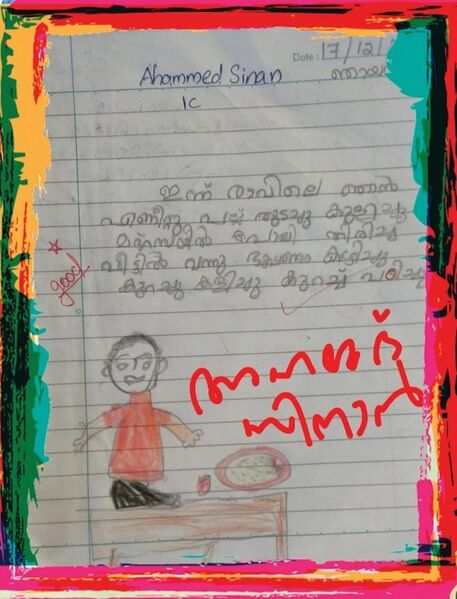 Date: 17/12/
Ahammed Sinan
ഞായ
1C
ഇന്ന് രാവിലെ ഞാൻ
എണീറ്റു പല്ല് തുടച്ചു കുളിച്ചു
മദ്റസയിൽ പോയി തിരിച്ചു
വീട്ടിൽ വന്നു ഭക്ഷണം കഴിച്ചു
കുറച്ചു കളിച്ചു കുറച്ച് പഠിച്ചു
good
അഹമ്മദ്
സിനാൻ